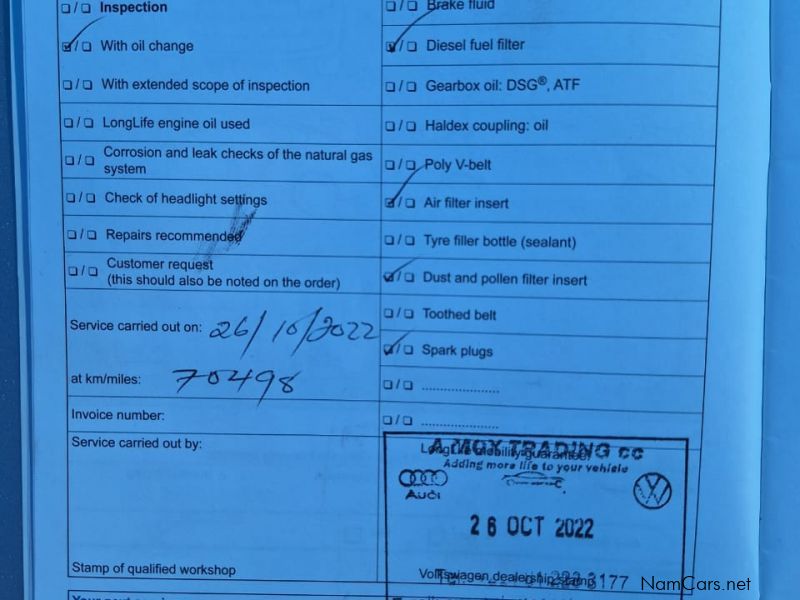 Inspection
With oil change
With extended scope of inspection
LongLife engine oil used
Corrosion and leak checks of the natural gas
system
Check of headlight settings
Repairs recommended
Customer request
(this should also be noted on the order)
Service carried out on: 26/10/2022
at km/miles: 70498
Invoice number:
Service carried out by:
Stamp of qualified workshop
Brake fluid
Diesel fuel filter
Gearbox oil: DSG®, ATF
Haldex coupling: oil
Poly V-belt
Air filter insert
Tyre filler bottle (sealant)
Dust and pollen filter insert
Toothed belt
Spark plugs
A MOX TRADING cc
LongLife mobility guarantee
Adding more life to your vehicle
Audi
26 OCT 2022
Volkswagen dealership stamp
3177
NamCars.net